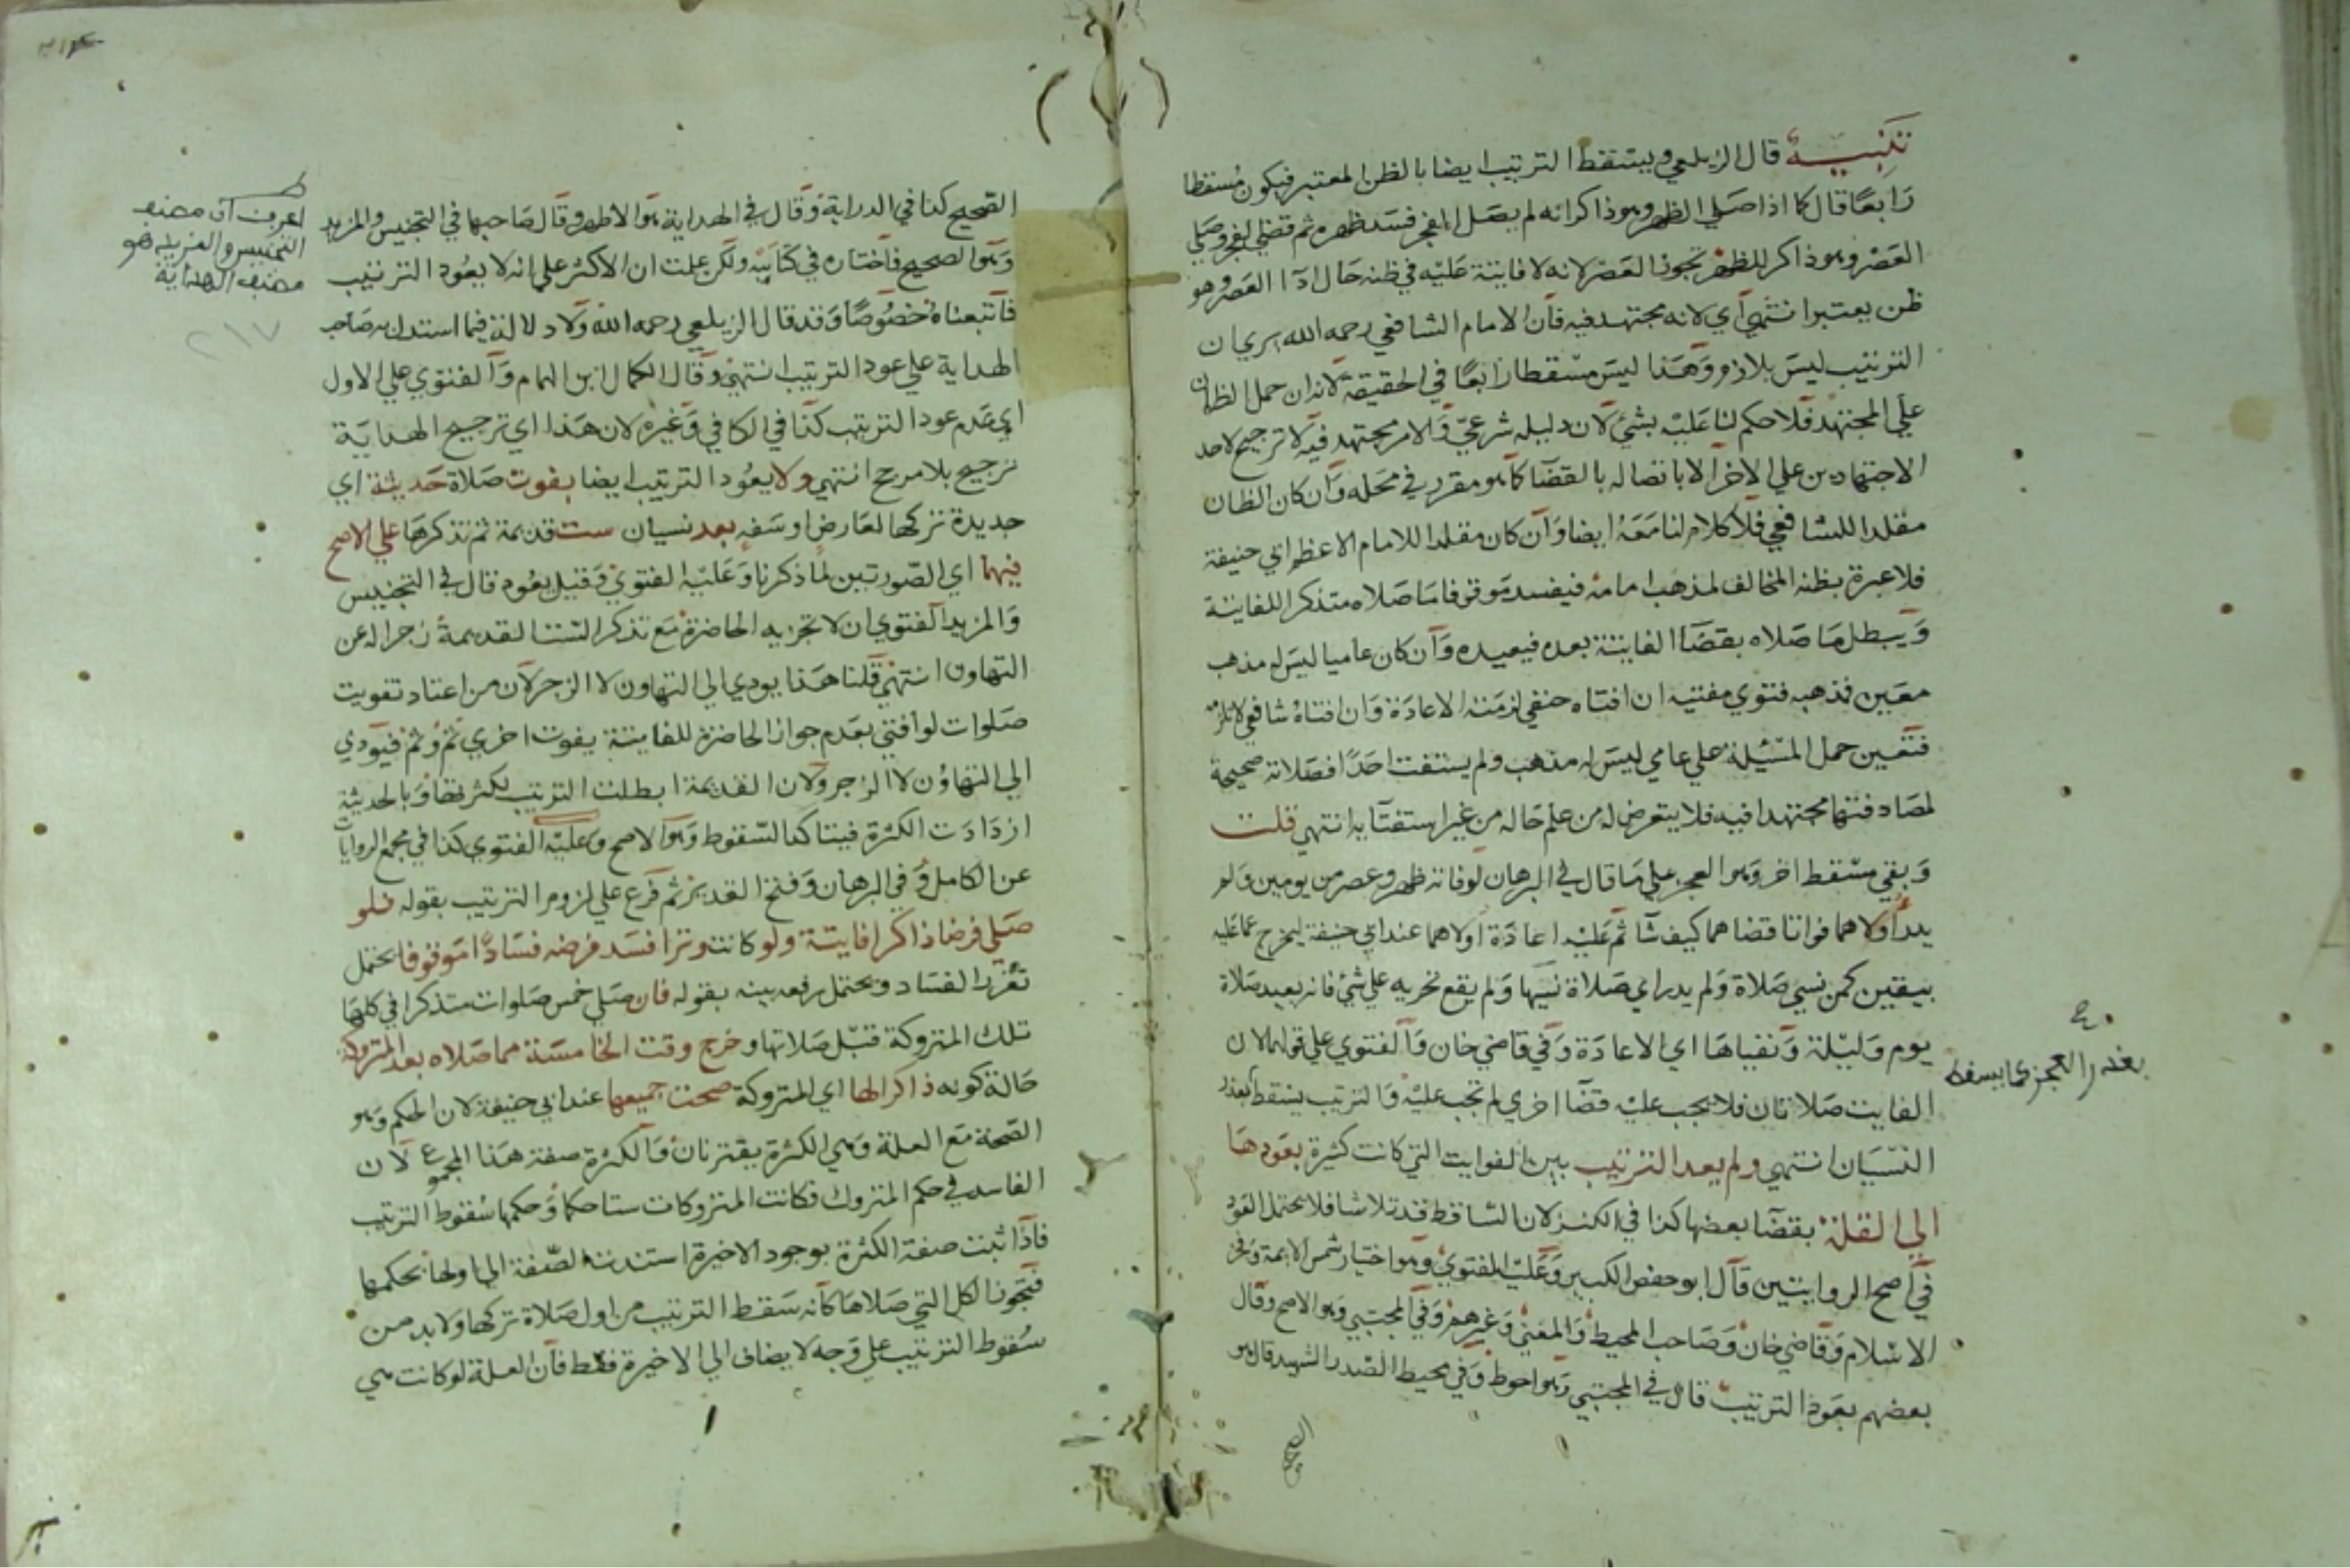 تنبيه قال الزيلعي ويسقط الترتيب ايضا بالظن المعتبر فيكون مسقطا
رابعا قال كما اذا صلي الظهر وهو ذاكر انه لم يصل الفجر فسد ظهره ثم قضي الفجر وصلي
العصر وهو ذاكر للظهر تجوز العصر لانه لا فايتة عليه في ظنه حال ادآ العصر وهو
ظن يعتبر انتهي اي لانه مجتهد فيه فان الامام الشافعي رحمه الله يري ان
الترتيب ليس بلازم وهذا ليس مسقطا رابعا في الحقيقة لانه ان حمل الظان
علي المجتهد فلا حكم لنا عليه بشئ لان دليله شرعي والامر مجتهد فيه لا ترجيح لاحد
الاجتهادين علي الاخر الا باتصاله بالقضا كما هو مقرر في محله وان كان الظان
مقلدا للشافعي فلا كلام لنا معه ايضا وان كان مقلدا للامام الاعظم ابي حنيفة
فلا عبرة بظنه المخالف لمذهب امامه فيفسد موقوفا ما صلاه متذكرا للفايتة
ويبطل ما صلاه بقضآ الفايتة بعده فيعيده وان كان عاميا ليس له مذهب
معين فمذهبه فتوي مفتيه ان افتاه حنفي لزمته الاعادة وان افتاه شافعي لا تلزمه
فتعين حمل المسئلة علي عامي ليس له مذهب ولم يستفت احدا فصلاته صحيحة
لمصادفتها مجتهدا فيه فلا يتعرض له من علم حاله من غير استفتآيه انتهي قلت
وبقي مسقط اخر وهو العجز علي ما قال في البرهان لو فاته ظهر وعصر من يومين ولم
يدر اولاهما فواتا قضاهما كيف شآ ثم عليه اعادة اولاهما عند ابي حنيفة ليخرج عما عليه
بيقين كمن نسي صلاة ولم يدر اي صلاة نسيها ولم يقع تحريه علي شئ فانه يعيد صلاة
يوم وليلة ونفياها اي الاعادة وفي قاضي خان والفتوي علي قولهما لان
الفايت صلاتان فلا يجب عليه قضآ اخري لم تجب عليه والترتيب يسقط بعذر
النسيان انتهي ولم يعد الترتيب بين الفوايت التي كانت كثيرة بعودها
الي القلة بقضآ بعضها كذا في الكنز لان الساقط قد تلاشا فلا يحتمل العود
في اصح الروايتين قال ابو حفص الكبير وعليه الفتوي وهو اختيار شمس الايمة وفخر
الاسلام وقاضي خان وصاحب المحيط والمغني وغيرهم وفي المجتبي وهو الاصح وقال
بعضهم بعود الترتيب قال في المجتبي وهو احوط وفي محيط الصدر الشهيد قال هو
بعذر العجز مما يسقط
الصحيح كذا في الدراية وقال في الهداية هو الاظهر وقال صاحبها في التجنيس والمزيد
وهو الصحيح فاختاره في كتابيه ولكن علمت ان الاكثر علي انه لا يعود الترتيب
فاتبعناه خصوصا وقد قال الزيلعي رحمه الله ولا دلالة فيما استدل به صاحب
الهداية علي عود الترتيب انتهي وقال الكمال ابن الهمام والفتوي علي الاول
اي عدم عود الترتيب كذا في الكافي وغيره لان هذا اي ترجيح الهداية
ترجيح بلا مرجح انتهي ولا يعود الترتيب ايضا بفوت صلاة حديثة اي
جديدة تركها لعارض او سفه بعد نسيان ست قديمة ثم تذكرها علي الاصح
فيهما اي الصورتين لما ذكرنا وعليه الفتوي وقيل يعود قال في التجنيس
والمزيد الفتوي ان لا تجزيه الحاضرة مع تذكر الست القديمة زجرا له عن
التهاون انتهي قلنا هذا يودي الي التهاون لا الزجر لان من اعتاد تفويت
صلوات لو افتي بعدم جواز الحاضرة للفايتة يفوت اخري ثم وثم فيودي
الي التهاون لا الزجر ولان القديمة ابطلت الترتيب لكثرتها وبالحديثة
ازدادت الكثرة فيتاكد السقوط وهو الاصح وعليه الفتوي كذا في مجمع الروايات
عن الكامل وفي البرهان وفتح القدير ثم فرع علي لزوم الترتيب بقوله فلو
صلي فرضا ذاكرا فايتة ولو كانت وترا فسد فرضه فسادا موقوفا يحتمل
تقرر الفساد ويحتمل رفعه بينه بقوله فان صلي خمس صلوات متذكرا في كلها
تلك المتروكة قبل صلاتها وخرج وقت الخامسة مما صلاه بعد المتروكة
حالة كونه ذاكرا لها اي المتروكة صحت جميعها عند ابي حنيفة لان الحكم وهو
الصحة مع العلة وهي الكثرة يقترنان والكثرة صفة هذا المجموع لان
الفاسد في حكم المتروك فكانت المتروكات ستا حكما وحكمها سقوط الترتيب
فاذا ثبت صفة الكثرة بوجود الاخيرة استندت الصفة الي اولها بحكمها
فتجوز الكل التي صلاها كانه سقط الترتيب من اول صلاة تركها ولا بد من
سقوط الترتيب علي وجه لا يضاف الي الاخيرة فقط فان العلة لو كانت هي
اعرف ان مصنف
التجنيس والمزيد هو
مصنف الهداية
٢١٧